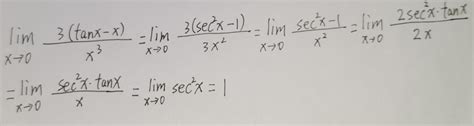 lim x→0 3(tanx-x)/x³ = lim x→0 3(sec²x-1)/3x² = lim x→0 sec²x-1/x² = lim x→0 2sec²x·tanx/2x
= lim x→0 sec²x·tanx/x = lim x→0 sec²x = 1